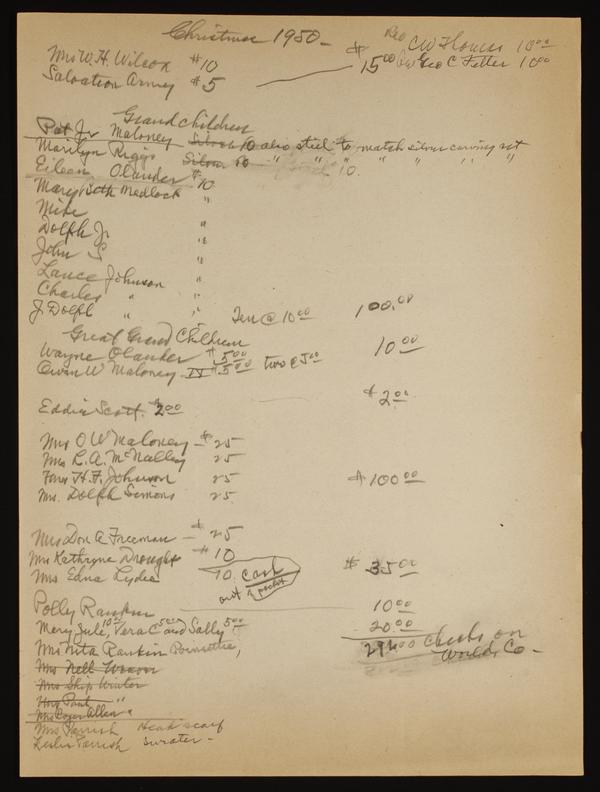 Christmas 1950 -
Rev CW Thomas 10 00
Mrs W.H. Wilcox $10
Salvation Army $5 $15 00 Rev Geo C Fetter 10 00
Grandchildren
Pat Jr Maloney Silver 10 also steel to match silver carving set
Marilyn Riggs Silver 10 " " 10. " " " "
Eileen Olander $10
Mary Beth Medlock "
Mike "
Dolph Jr "
John S "
Lance Johnson "
Charles " "
J Dolph " " Ten @ 10 00 100.00
Great Grand Children
Wayne Olander $5.00 10 00
Owen W Maloney IV $5.00 two @ 5 00
$2 00
Eddie Scott. $2 00
Mrs O W Maloney - $25
Mrs L.A. McNalley 25
Mrs H.F. Johnson 25 $100 00
Mrs. Dolph Simons 25
Mrs Don A Freeman - $25
Mrs Kathryne Droughs $10
Mrs Edna Lydia 10. cash $35 00
out of pocket
Polly Rankin 10 00
Mary Jule, 10 00 Vera C 5 00 and Sally 5 00 20 00
Mrs Nita Rankin Poinsettia, 294.00 checks on
Worlds Co -
Mrs Nell
Mrs Skip Winter
Paul "
Mrs Roger Allen "
Mrs Parrish Head scarf
Leslie Parrish sweater -